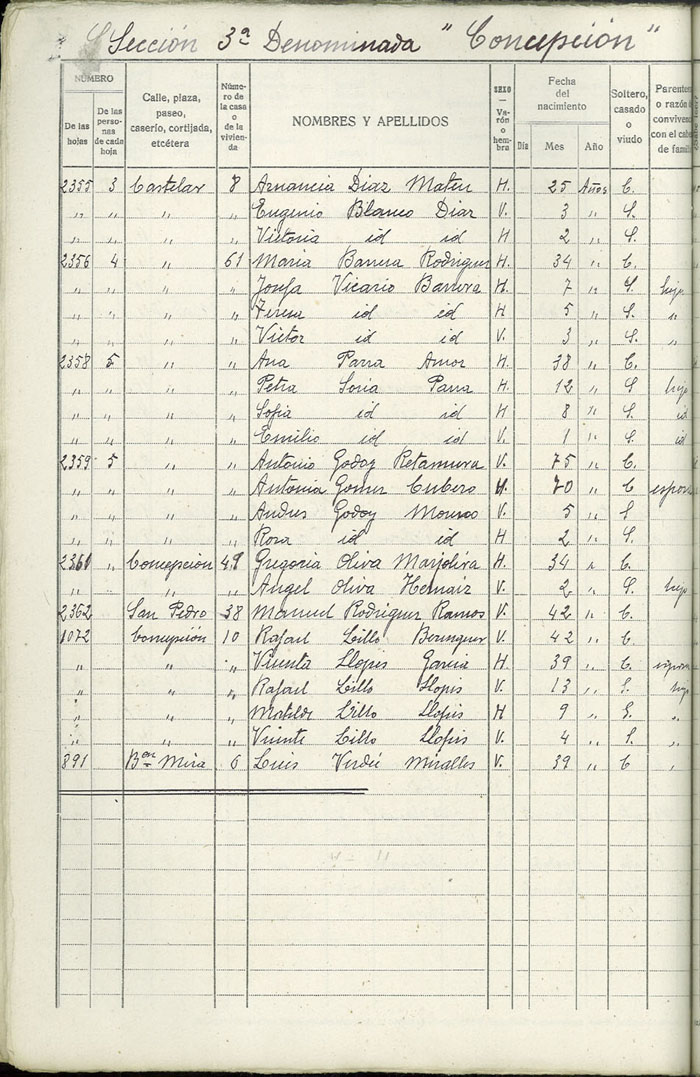 Sección 3ª Denominada "Concepción"
NÚMERO
De las hojas
De las personas de cada hoja
Calle, plaza, paseo, caserío, cortijada, etcétera
Número de la casa o de la vivienda
NOMBRES Y APELLIDOS
SEXO — Varón o hembra
Fecha del nacimiento
Día Mes Año
Soltero, casado o viudo
Parentes o razón d convivenc con el cabe de famili
2355 3 Castelar 8 Amancia Diaz Mateu H. 25 Años C.
" " " " Eugenio Blanco Diaz V. 3 " S.
" " " " Victoria id id H 2 " S.
2356 4 " 61 Maria Barrera Rodriguez H. 34 " C.
" " " " Josefa Vicario Barrera H 7 " S. hijo
" " " " Teresa id id H 5 " S. "
" " " " Victor id id V. 3 " S. "
2358 5 " " Ana Parra Amor H. 38 " C.
" " " " Petra Soria Parra H. 12 " S hijo
" " " " Sofia id id H 8 " S. id
" " " " Emilio id id V. 1 " S. id
2359 5 " " Antonio Godoy Retamura V. 75 " C.
" " " " Antonia Gomez Cubero H. 70 " C espos
" " " " Andres Godoy Moreno V. 5 " S
" " " " Rosa id id H 2 " S.
2360 " Concepción 49 Gregoria Oliva Marjoliza H. 34 " C.
" " " " Angel Oliva Hernaiz V. 2 " S. hijo
2362 San Pedro 38 Manuel Rodriguez Ramos V. 42 " C.
1072 Concepción 10 Rafael Lillo Berenguer V. 42 " C.
" " " Vicenta Llopis Garcia H. 39 " C. espos
" " " Rafael Lillo Llopis V. 13 " S. hijo
" " " Matilde Lillo Llopis H 9 " S. "
" " " Vicente Lillo Llopis V. 4 " S. "
891 Bon Mira 6 Luis Verdú Miralles V. 39 " C "